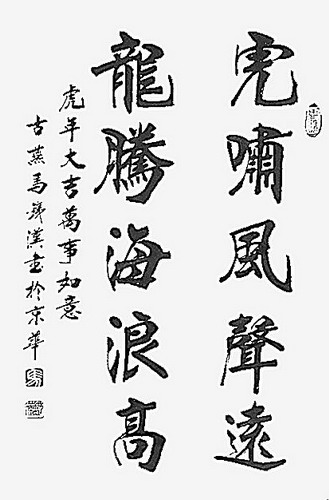 虎嘯風聲遠
龍騰海浪高
虎年大吉萬事如意
古燕馬漢書於京華